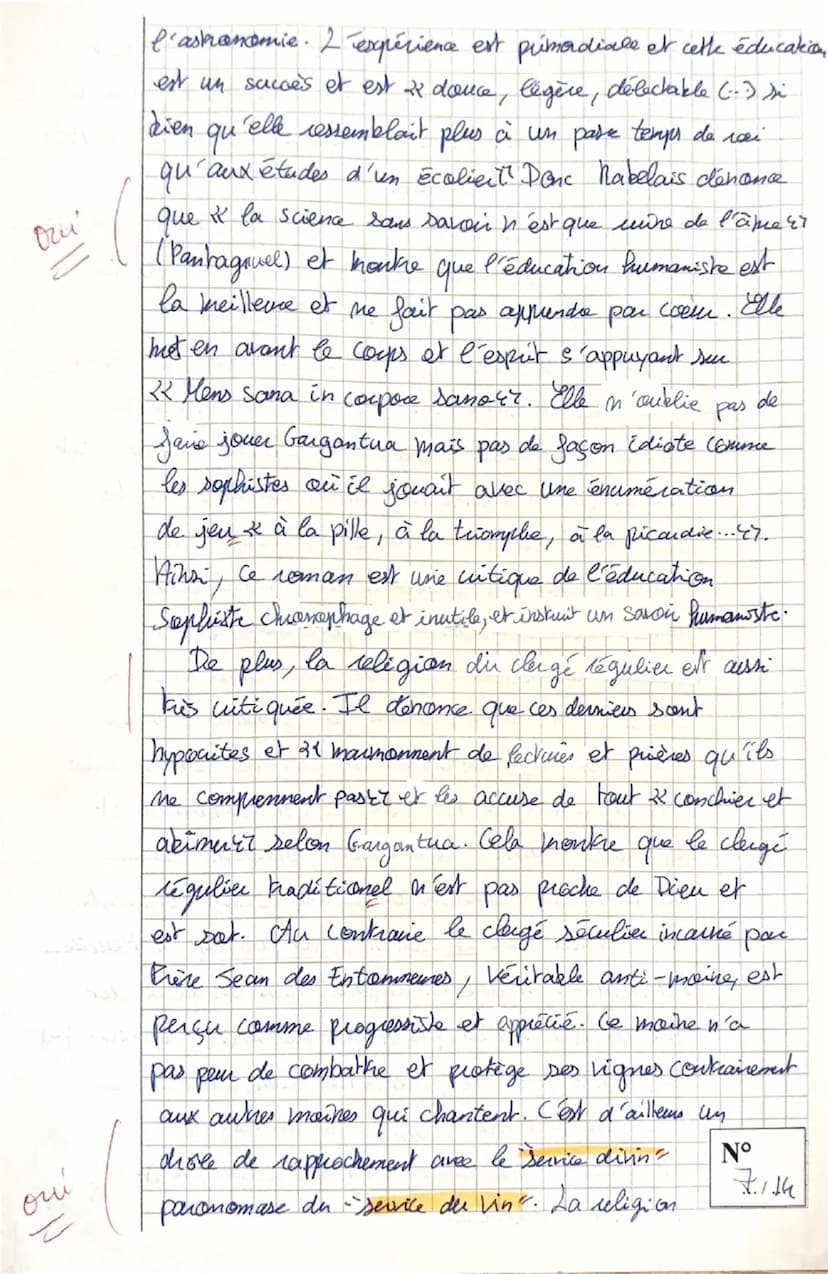 l'astronomie. L'expérience est primordiale et cette éducation
est un succès et est « douce, légère, délectable (...) si
bien qu'elle ressemblait plus à un passe temps de roi
qu'aux études d'un écolier". Donc Rabelais dénonce
oui
que « la science sans savoir n'est que ruine de l'âme »
(Pantagruel) et montre que l'éducation humaniste est
la meilleure et ne fait pas apprendre par coeur. Elle
met en avant le corps et l'esprit s'appuyant sur
« Mens sana in corpore sano ». Elle n'oublie pas de
faire jouer Gargantua mais pas de façon idiote comme
les sophistes où il jouait avec une énumération
de jeu « à la pille, à la triomphe, à la picardie... ».
Ainsi, ce roman est une critique de l'éducation
Sophiste chronophage et inutile, et instruit un savoir humaniste.
De plus, la religion du clergé régulier est aussi
très critiquée. Il dénonce que ces derniers sont
hypocrites et « marmonnent de et prières qu'ils
ne comprennent pas » et les accuse de tout « conchier et
abîmer » selon Gargantua. Cela montre que le clergé
régulier traditionel n'est pas proche de Dieu et
est sot. Au contraire le clergé séculier incarné par
Frère Jean des Entommeures, véritable anti-moine, est
perçu comme progressiste et apprécié. Ce moine n'a
pas peur de combattre et protège ses vignes contrairement
aux autres moines qui chantent. C'est d'ailleurs un
drole de rapprochement avec le "service divin"
oui
paronomase du "service du vin". La religion
N°
7/14